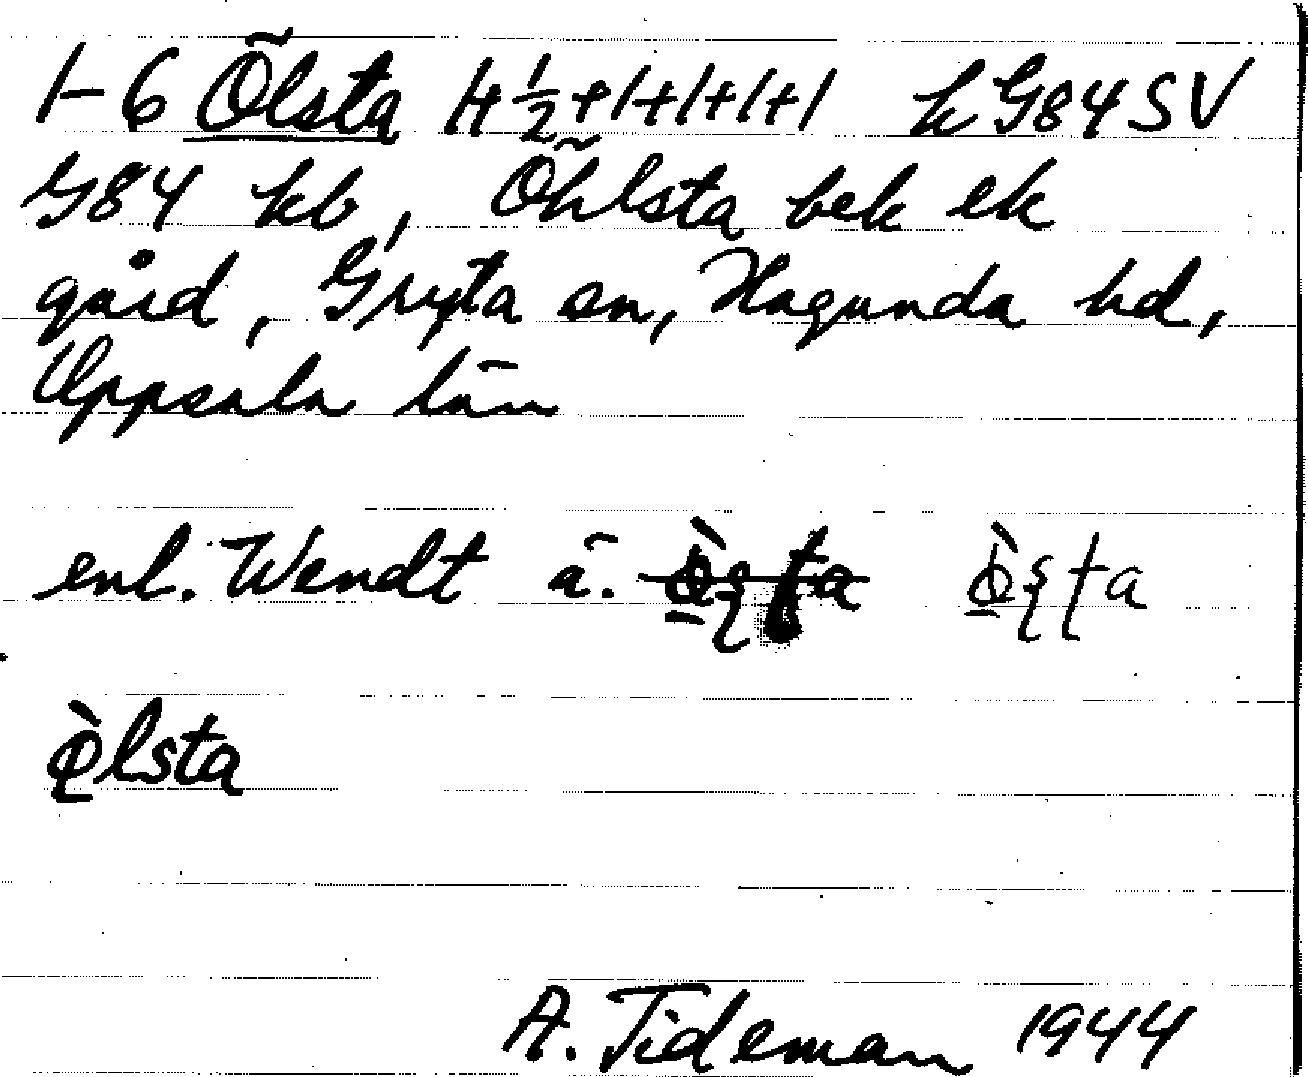 1-6 Ölsta 4 ½+1+1+1+1+1 k G84SV
G84 kb, Öhlsta bek ek
gård, Gryta sn, Hagunda hd,
Uppsala län
enl. Wendt ä.
ö̀lsta
A. Tideman 1944